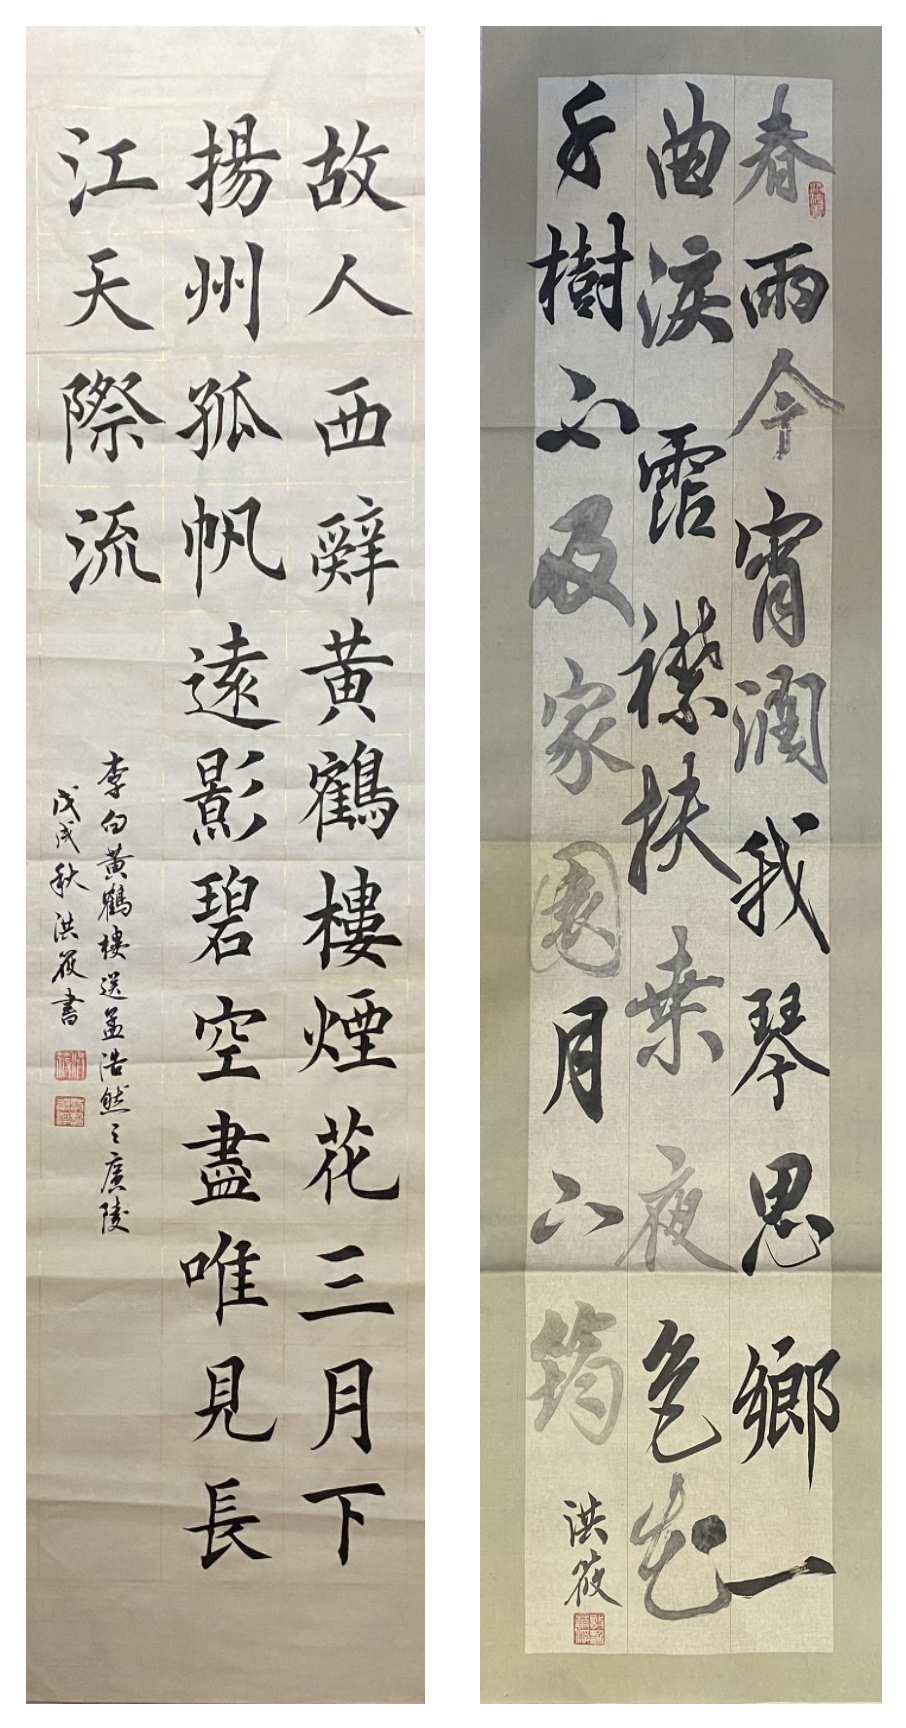 故人西辭黄鶴樓煙花三月下
揚州孤帆遠影碧空盡唯見長
江天際流
李白黄鶴樓送孟浩然之廣陵
戊戌秋洪筱書
春雨今宵潤我琴思鄉一
曲淚霑襟扶桒夜色花
千樹不及家園月下筠
洪筱